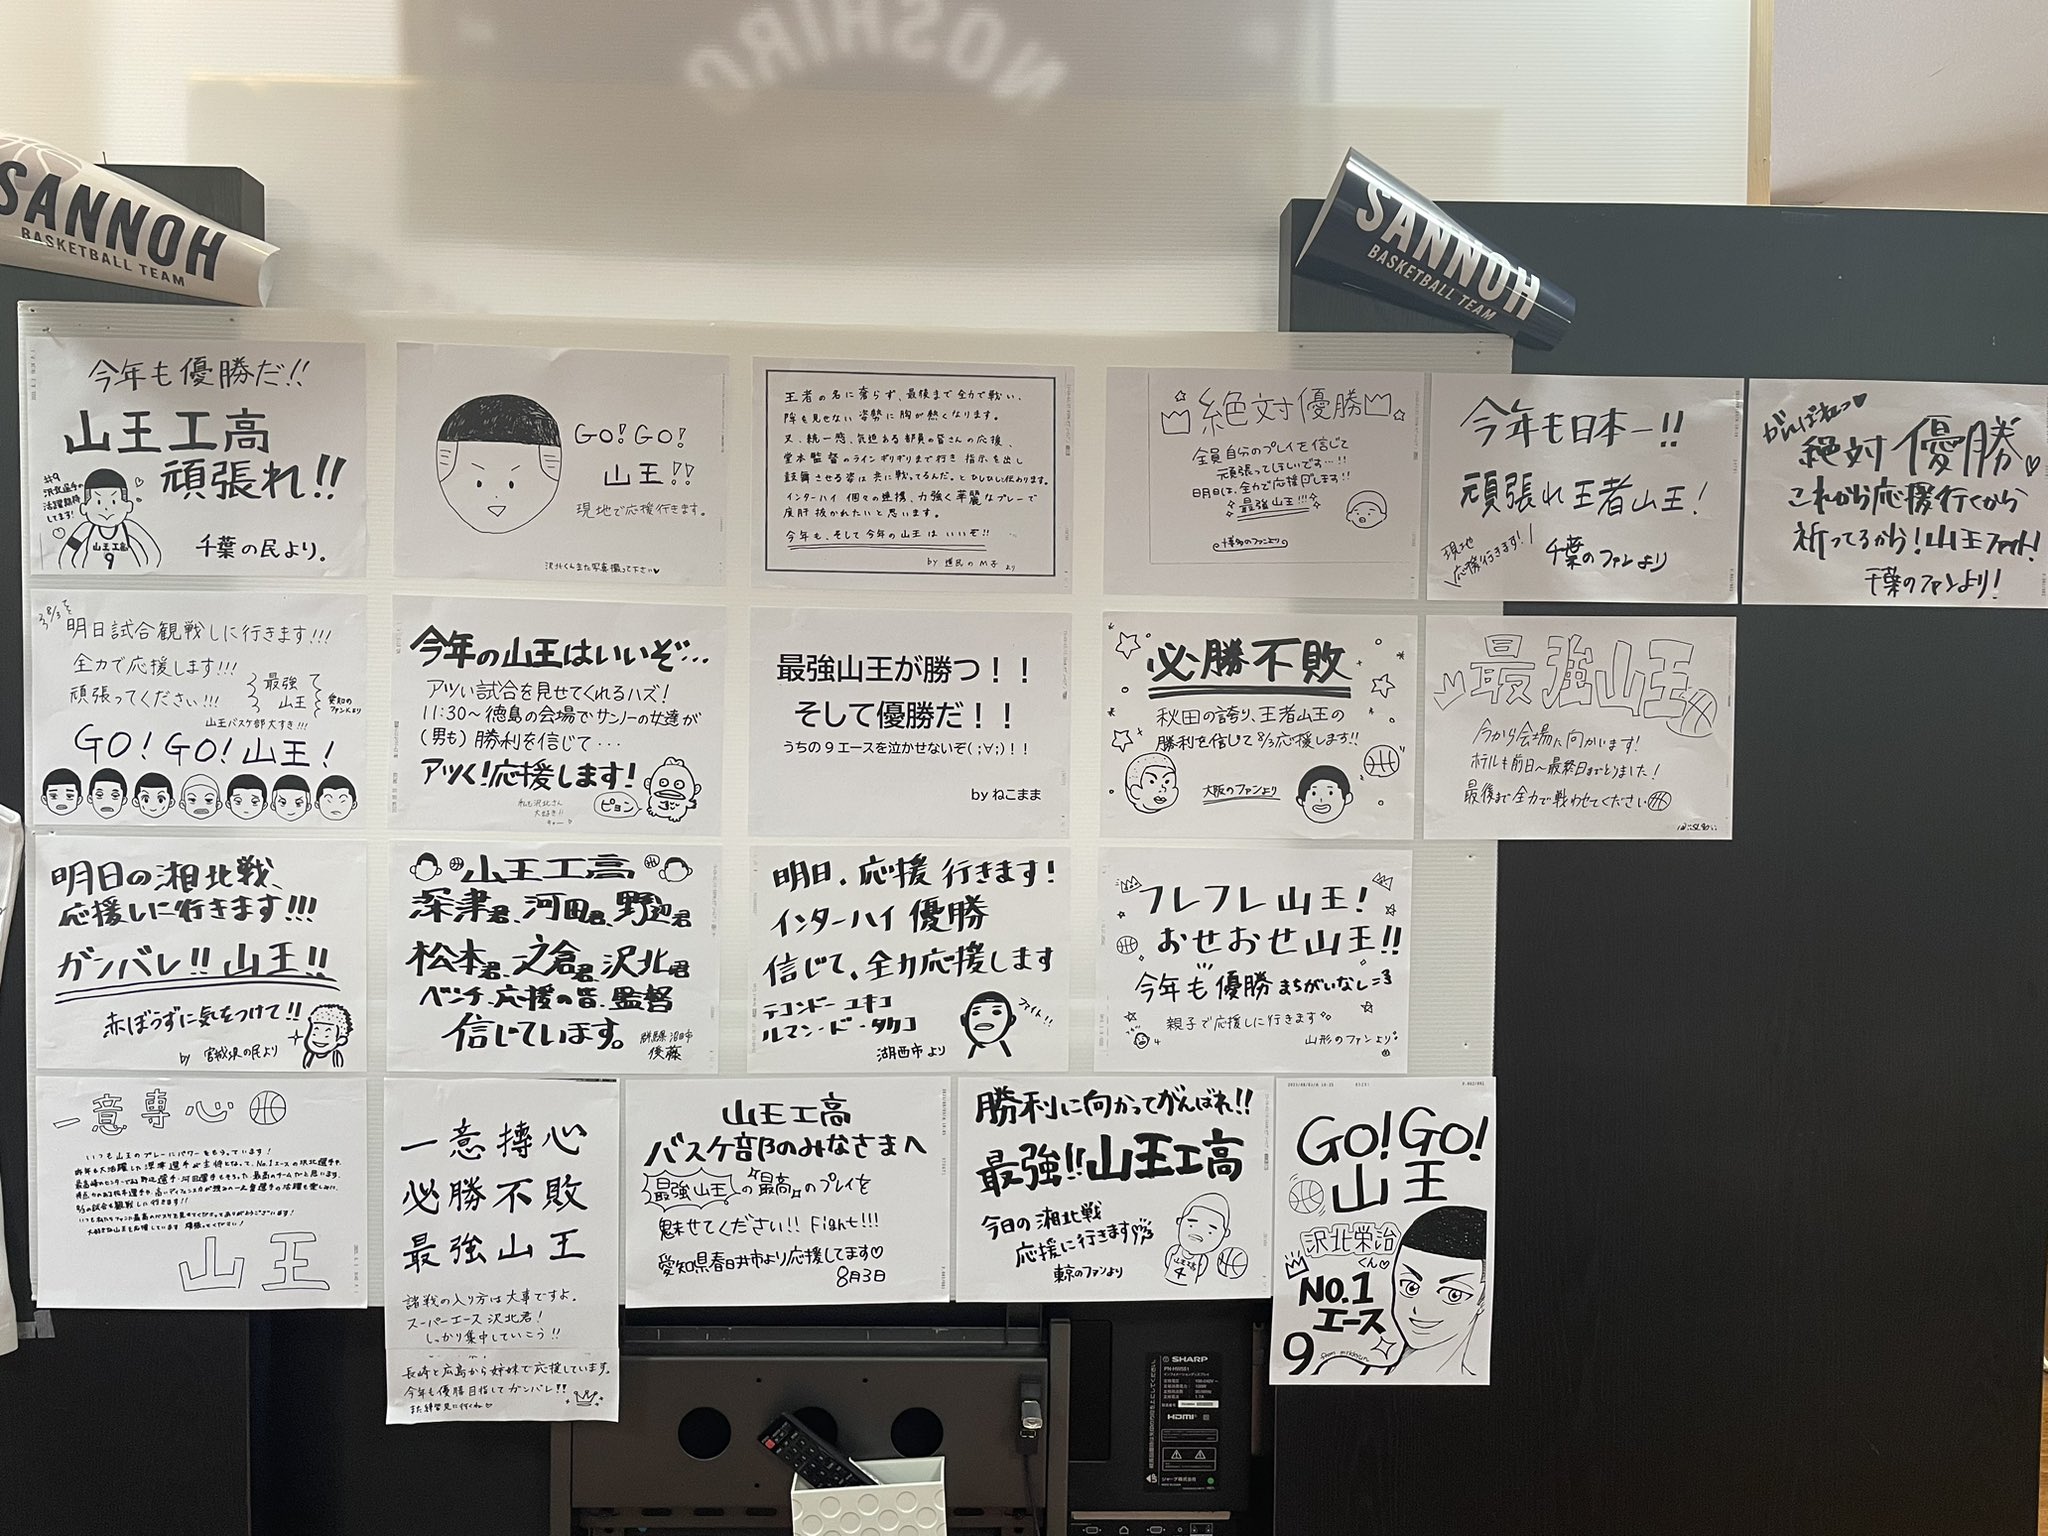 NOSHIRO
SANNOH
BASKETBALL TEAM
SANNOH
BASKETBALL TEAM
今年も優勝だ!!
山王工高
頑張れ!!
#9
沢北選手の
活躍期待
してます!
山王工高
9
千葉の民より。
GO! GO!
山王!!
現地で応援行きます。
沢北くんまた写真撮って下さい♥
王者の名に奢らず、最後まで全力で戦い、
隙も見せない姿勢に胸が熱くなります。
又、統一感、気迫ある部員の皆さんの応援、
堂本監督のラインギリギリまで行き指示を出し
鼓舞させる姿は共に戦ってるんだ。とひしひしと伝わります。
インターハイ 個々の連携、力強く華麗なプレーで
度肝抜かれたいと思います。
今年も、そして今年の山王はいいぞ!!
by 道民のM子より
絶対優勝
全員自分のプレイを信じて
頑張ってほしいです…!!
明日は、全力で応援します!!
最強山王!!!
博多のファンより
今年も日本一!!
頑張れ王者山王!
現地
応援行きます!
千葉のファンより
がんばれっ♥
絶対優勝♡
これから応援行くから
祈ってるから!山王ファイト!
千葉のファンより!
8/3
明日試合観戦しに行きます!!!
全力で応援します!!!
頑張ってください!!!
最強
山王
愛知の
ファンより
山王バスケ部大すき!!!
GO! GO! 山王!
今年の山王はいいぞ…
アツい試合を見せてくれるハズ!
11:30～徳島の会場でサンノーの女達が
(男も)勝利を信じて…
アツく!応援します!
私も沢北さん
大好き!!
キャー
ピョン
最強山王が勝つ！！
そして優勝だ！！
うちの９エースを泣かせないぞ( ;∀;)！！
by ねこまま
必勝不敗
秋田の誇り、王者山王の
勝利を信じて8/3応援します!!
大阪のファンより
最強山王
今から会場に向かいます!
ホテルも前日～最終日までとりました!
最後まで全力で戦わせてください
明日の湘北戦、
応援しに行きます!!!
ガンバレ!! 山王!!
赤ぼうずに気をつけて!!
by 宮城県の民より
山王工高
深津君、河田君、野辺君
松本君、之倉君、沢北君
ベンチ、応援の皆、監督
信じています。
群馬県 沼田市
後藤
明日、応援行きます!
インターハイ優勝
信じて、全力応援します
テコンドー・ユキコ
ルマン・ド・タケコ
ファイト!!
湖西市より
フレフレ山王!
おせおせ山王!!
今年も優勝まちがいなし
親子で応援しに行きます
山形のファンより
一意専心
いつも山王のプレーにパワーをもらっています!
昨年も大活躍した深津選手が主将となって、No.1エースの沢北選手や、
8/3の試合も観戦しに行きます!!
山王
一意摶心
必勝不敗
最強山王
諸戦の入り方は大事ですよ。
スーパーエース沢北君!
しっかり集中していこう!!
長崎と広島から姉妹で応援しています。
今年も優勝目指してガンバレ!!
また練習見に行くね♡
山王工高
バスケ部のみなさまへ
最強山王の"最高"のプレイを
魅せてください!! Fight!!!
愛知県春日井市より応援してます♡
8月3日
勝利に向かってがんばれ!!
最強!!山王工高
今日の湘北戦
応援に行きます
東京のファンより
GO! GO!
山王
沢北栄治
くん♡
NO.1
エース
9
SHARP
PN-HW551
インフォメーションディスプレイ
HDMI
シャープ株式会社